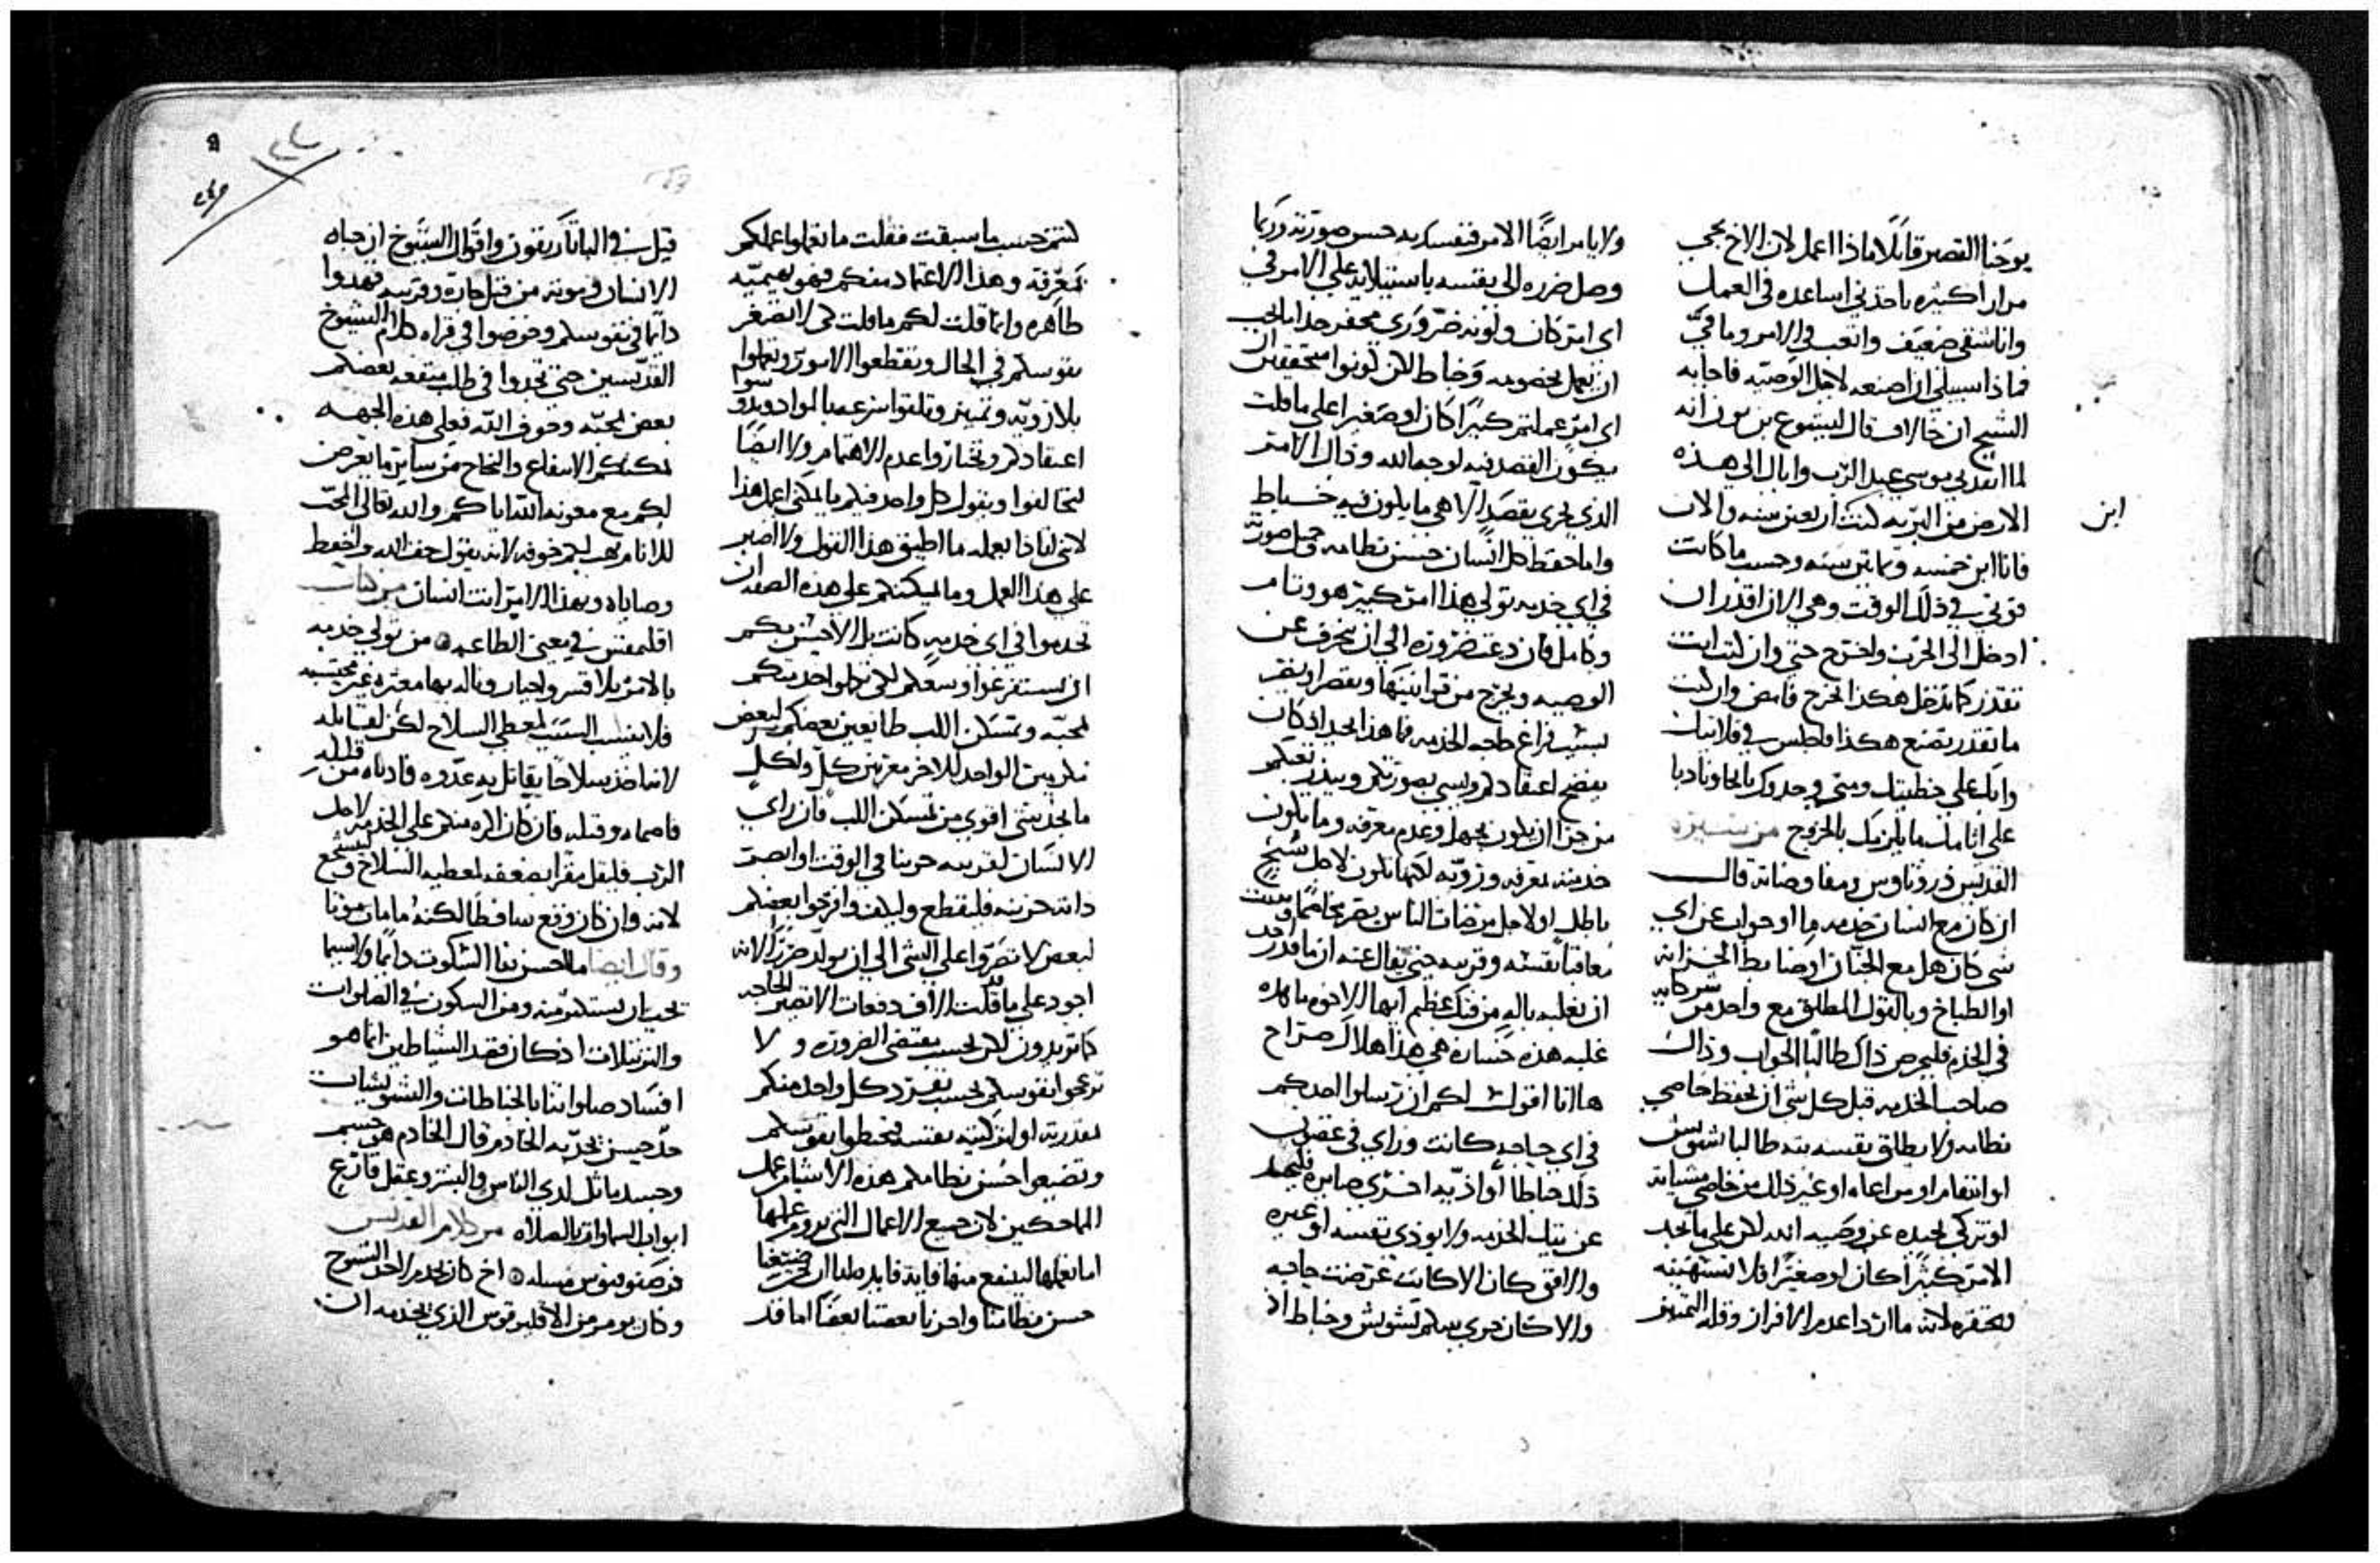 يوحنا القصير قايلًا ماذا اعمل لان الاخ يجي
مرارا كثيره ياخذني اساعده في العمل
وانا شقي ضعيف واتعب في الامر وما فيّ
فماذا سبيلي ان اصنعه لاجل الوصيه فاجابه
الشيخ ان خالاف قال ليشوع بن نون انه
لما انفدني موسى عبد الرّب واياك الي هذه
الارض من البريه كنت اربعين سنه والان
ابن
فانا ابن خمسه وثمانين سنه وحسب ما كانت
قوتي في ذلك الوقت وهي الان اقدر ان
ادخل الى الحرب واخرج حتي وان كنت انت
تقدر كما تدخل هكذا تخرج فامض وان كنت
ما تقدر تصنع هكذا فاجلس في قلايتك
وابك على خطيتك ومتى وجدوك باكيا ونادبا
على اثامك ما يلزمك بالخروج من سيرة
القديس دوروتاوس ومفاوضاته قال
ان كان مع انسان خدمه ما او جواب عن اي
شي كان هل مع الخبّاز او ضابط الخزانه
او الطباخ وبالقول المطلق مع واحد من شركايه
في الخدم فليحرص ذاك طالبًا الجواب وذاك
صاحب الخدمه قبل كل شي ان يحفظ خاصي
نظامه ولا يطلق نفسه بته طالبا تشويش
او انتقام او مراعاه او غير ذلك من خاصي مشياته
او تزكي تجيده عن وصيه الله لكن على ما تجد
الامر كبيرًا كان او صغيرًا فلا تستهينه
وتحقره لانه ما اردا عدم الافراز وقله التمييز
ولا يامر ايضًا الامر فنفسك به حسن صورته وربما
وصل ضرره الى نفسه باستيلايه على الامر في
اي امر كان ولونه ضروري محفز جدا يجب
ان نعمل بخصومه وخباط لكن كونوا متحققين ان
اي امرٍ عملتم كبيرًا كان او صغيرا على ما قلت
يكون القصد فيه لوجه الله وذاك الامر
الذي يجري بقصدٍ الاهي ما يكون فيه خباط
واما حفظ كل انسان حسن نظامه وجميل صورته
في اي خدمه تولى هذا امر كبير هو وتام
وكامل فان دعت ضروره الى ان ينحرف عن
الوصيه ويخرج من قوانينها ويقصر او يفتر
بسبب فراغ حاجه الخدمه فما هذا الجيد اذ كان
يفضح اعتقادكم ويسي بصورتكم ويبذر تعبكم
من جزا ان يكون بجهل وعدم معرفه وما يكون
خدمته بمعرفه ورويّه لكنها تكون لاجل سبح
باطل او لاجل مرضات الناس
معاقبا نفسه وقريبه حتي يقال عنه ان ما قدر احد
ان يغلبه باله من فتك عظيم ايها الاخوه ما هذه
غلبه هذه خساره هي هذا هلاك صراح
هاانا اقول لكم ان ترسلوا احدكم
في اي حاجه كانت وراى في عضون
ذلك خباطًا او اذيّه اخرى صايره فليحد
عن تيك الخدمه ولا يوذي نفسه او غيره
والافق كان الا كانت عرضت حاجه
والا كان جرى بينكم تشويش وخباط اذ
كنتم حسب ما سبقت فقلت ما تعملوا عملكم
بمعرفه وهذا الاعتماد منكم فهو بعميّه
طاهره وانما قلت لكم ما قلت كى لا تصغر
نفوسكم في الحال وتقطعوا الامور وتعملوا
بلا رويّه وتمييز وتلقوا سرعه بالمواد ويدو سوا
اعتقادكم وتختاروا عدم الاهتمام ولا ايضًا
تتخالفوا ويقول كل واحد فيكم ما يمكني اعمل هذا
لانى لماذا يعمله ما اطيق هذا القول ولا اصير
على هذا العمل وما يمكنكم على هذه الصفه ان
تخدموا في اي خدمه كانت بل الاحسن بكم
ان تستفرغوا وسعكم لكى تكملوا خدمتكم
بمحبّه وتمسكن اللب طايعين بعضكم لبعض
مكرمين الواحد للاخر معزيين كل ولكل
ما يجد شي اقوى من تمسكن اللب فان راى
الانسان لقريبه حزينا في الوقت او ابصر
ذاته حزينه فليقطع وليكف وافرجوا بعضكم
لبعض لا تصرّوا على الشي الى ان يولد ضررًا لانه
اجود على ما قد قلت الاف دفعات الا تصير الحاجه
كما تريدون لكن بحسب مقتضى الضروره ولا
تزعجوا نفوسكم بحسب تفرد كل واحد منكم
لقدرته او لتزكيته نفسه فتحبطوا نفوسكم
وتضيعوا حسن نظامكم هذه الاشيا عمل
الماحكين لان جميع الاعمال التي نروم عملها
انما نعملها لينتفع منها فايه فايده طلبنا ان ضيعنا
حسن نظامنا واحزنا بعضنا بعضًا اما قد
قيل في الباتاريقون واقوال الشيوخ ان حياه
الانسان وموته من قبل جاره وقريبه فهدوا
دايمًا في نفوسكم وخوضوا في قراه كلام الشيوخ
القديسين حتى تجدوا في طلب منفعه بعضكم
بعض بمحبّه وخوف الله فعلى هذه الجهه
يمكنكم الانتفاع والنجاح من ساير ما يعرض
لكم مع معونه الله اياكم والله تعالى المحبّ
للانام يهب لكم خوفه لانه يقول خف الله واحفظ
وصاياه وبهذا الامر انت انسان من كتاب
اقليمقس في معنى الطاعه من تولى خدمه
بالامر بلا قسر واحيار وناله بها معثره غير محتسبه
فلا ينسب السبب لمعطي السلاح لكن لقابله
لانما اخذ سلاحًا يقاتل به عدوه فاداه من قلبه
فاصماه وقتله فان كان اكره منكم على الخدمه لاجل
الرّب فليقل مقرًا بضعفه لمعطيه السلاح ليتشجع
لانه وان كان وقع ساقطًا لكنه ما مات موتا
وقال ايضا ما احسن بنا السكوت دايما ولاسيما
يجب ان يستكثر منه ومن السكون في الصلوات
والترتيلات اذ كان قصد الشياطين انما هو
افساد صلواتنا بالخباطات والتشويشات
حدّ حسن تحدّبه الخادم قال الخادم هو جسم
وجسد ماثل لدي الناس والبشر وعقل قارع
ابواب السماوات بالصلاه من كلام القديس
مسله اخ كان يخدم لاحد الشيوخ
وكان يومر من الاقليوقوس الذي يخدمه ان